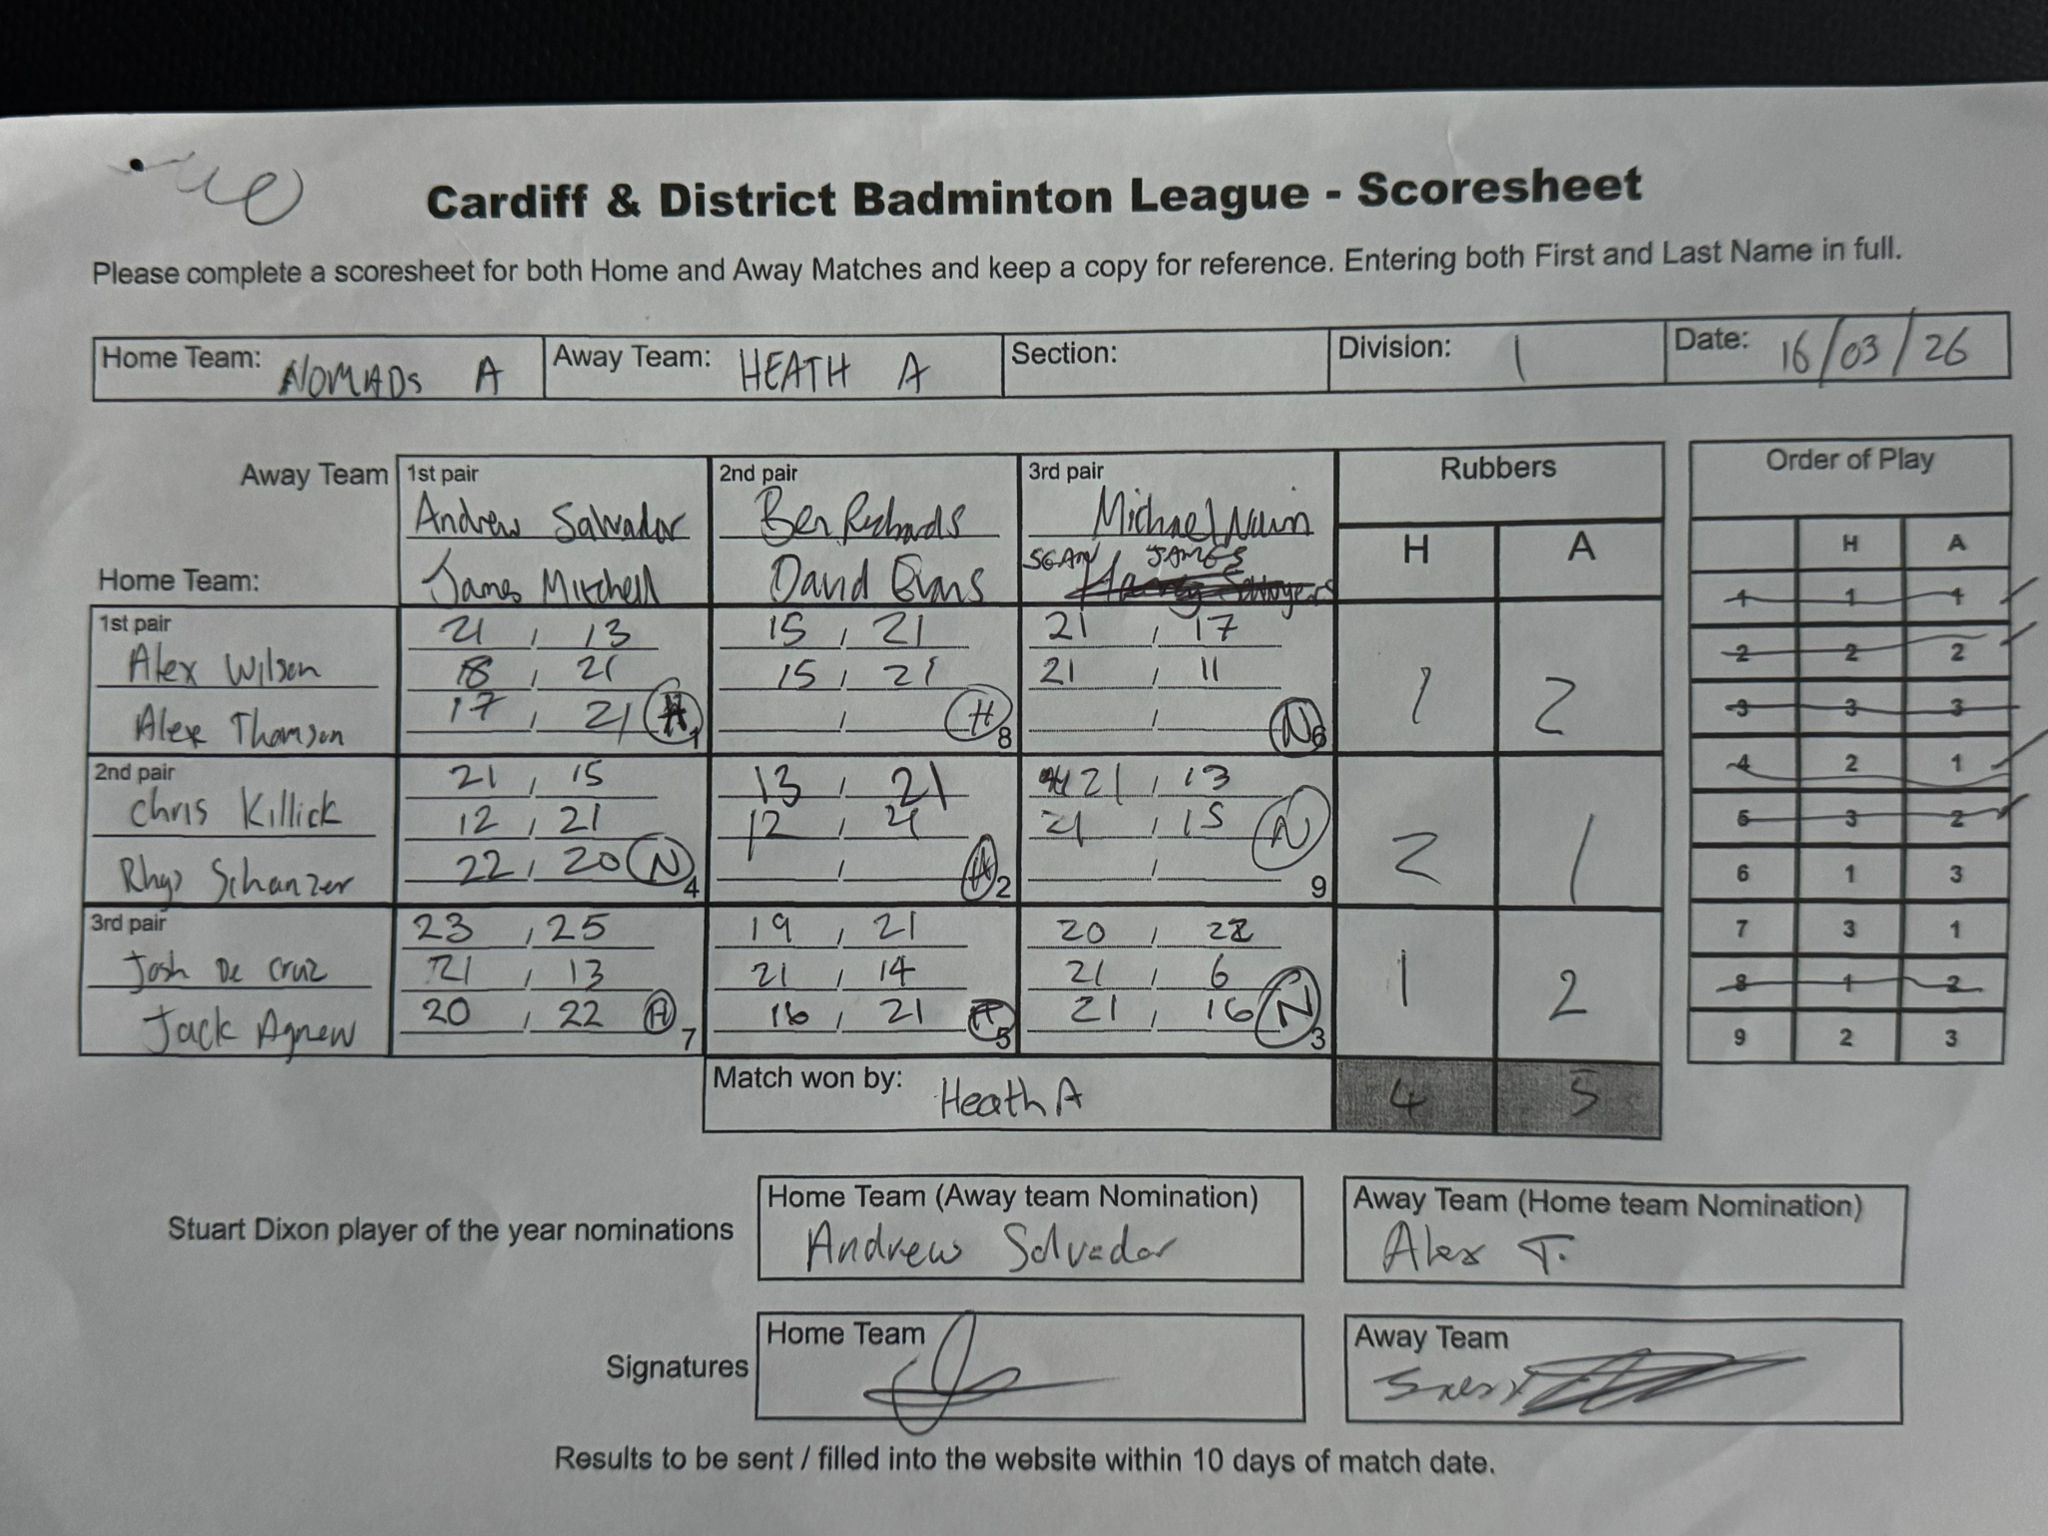 Cardiff & District Badminton League - Scoresheet
Please complete a scoresheet for both Home and Away Matches and keep a copy for reference. Entering both First and Last Name in full.
Home Team: NOMADS A Away Team: HEATH A Section: Division: 1 Date: 16/03/26
Away Team 1st pair 2nd pair 3rd pair Rubbers Order of Play
Andrew Salvador Ben Richards Michael
H A H A
SEAN JAMES
Home Team: James Mitchell David Evans
1 1 1
1st pair 21 , 13 15 , 21 21 , 17
Alex Wilson 18 , 21 15 , 21 21 , 11 1 2 2 2 2
Alex Thomson 17 , 21 H 1 , H 8 , N 6 3 3 3
2nd pair 21 , 15 13 , 21 21 , 13 4 2 1
Chris Killick 12 , 21 12 , 21 21 , 15 N 2 1 5 3 2
Rhys Schanzer 22 , 20 N 4 , H 2 , 9 6 1 3
3rd pair 23 , 25 19 , 21 20 , 22 7 3 1
Josh De Cruz 21 , 13 21 , 14 21 , 6 1 2 8 1 2
Jack Agnew 20 , 22 H 7 16 , 21 H 5 21 , 16 N 3 9 2 3
Match won by: Heath A 4 5
Stuart Dixon player of the year nominations
Home Team (Away team Nomination) Away Team (Home team Nomination)
Andrew Salvador Alex T.
Signatures
Home Team Away Team
Results to be sent / filled into the website within 10 days of match date.